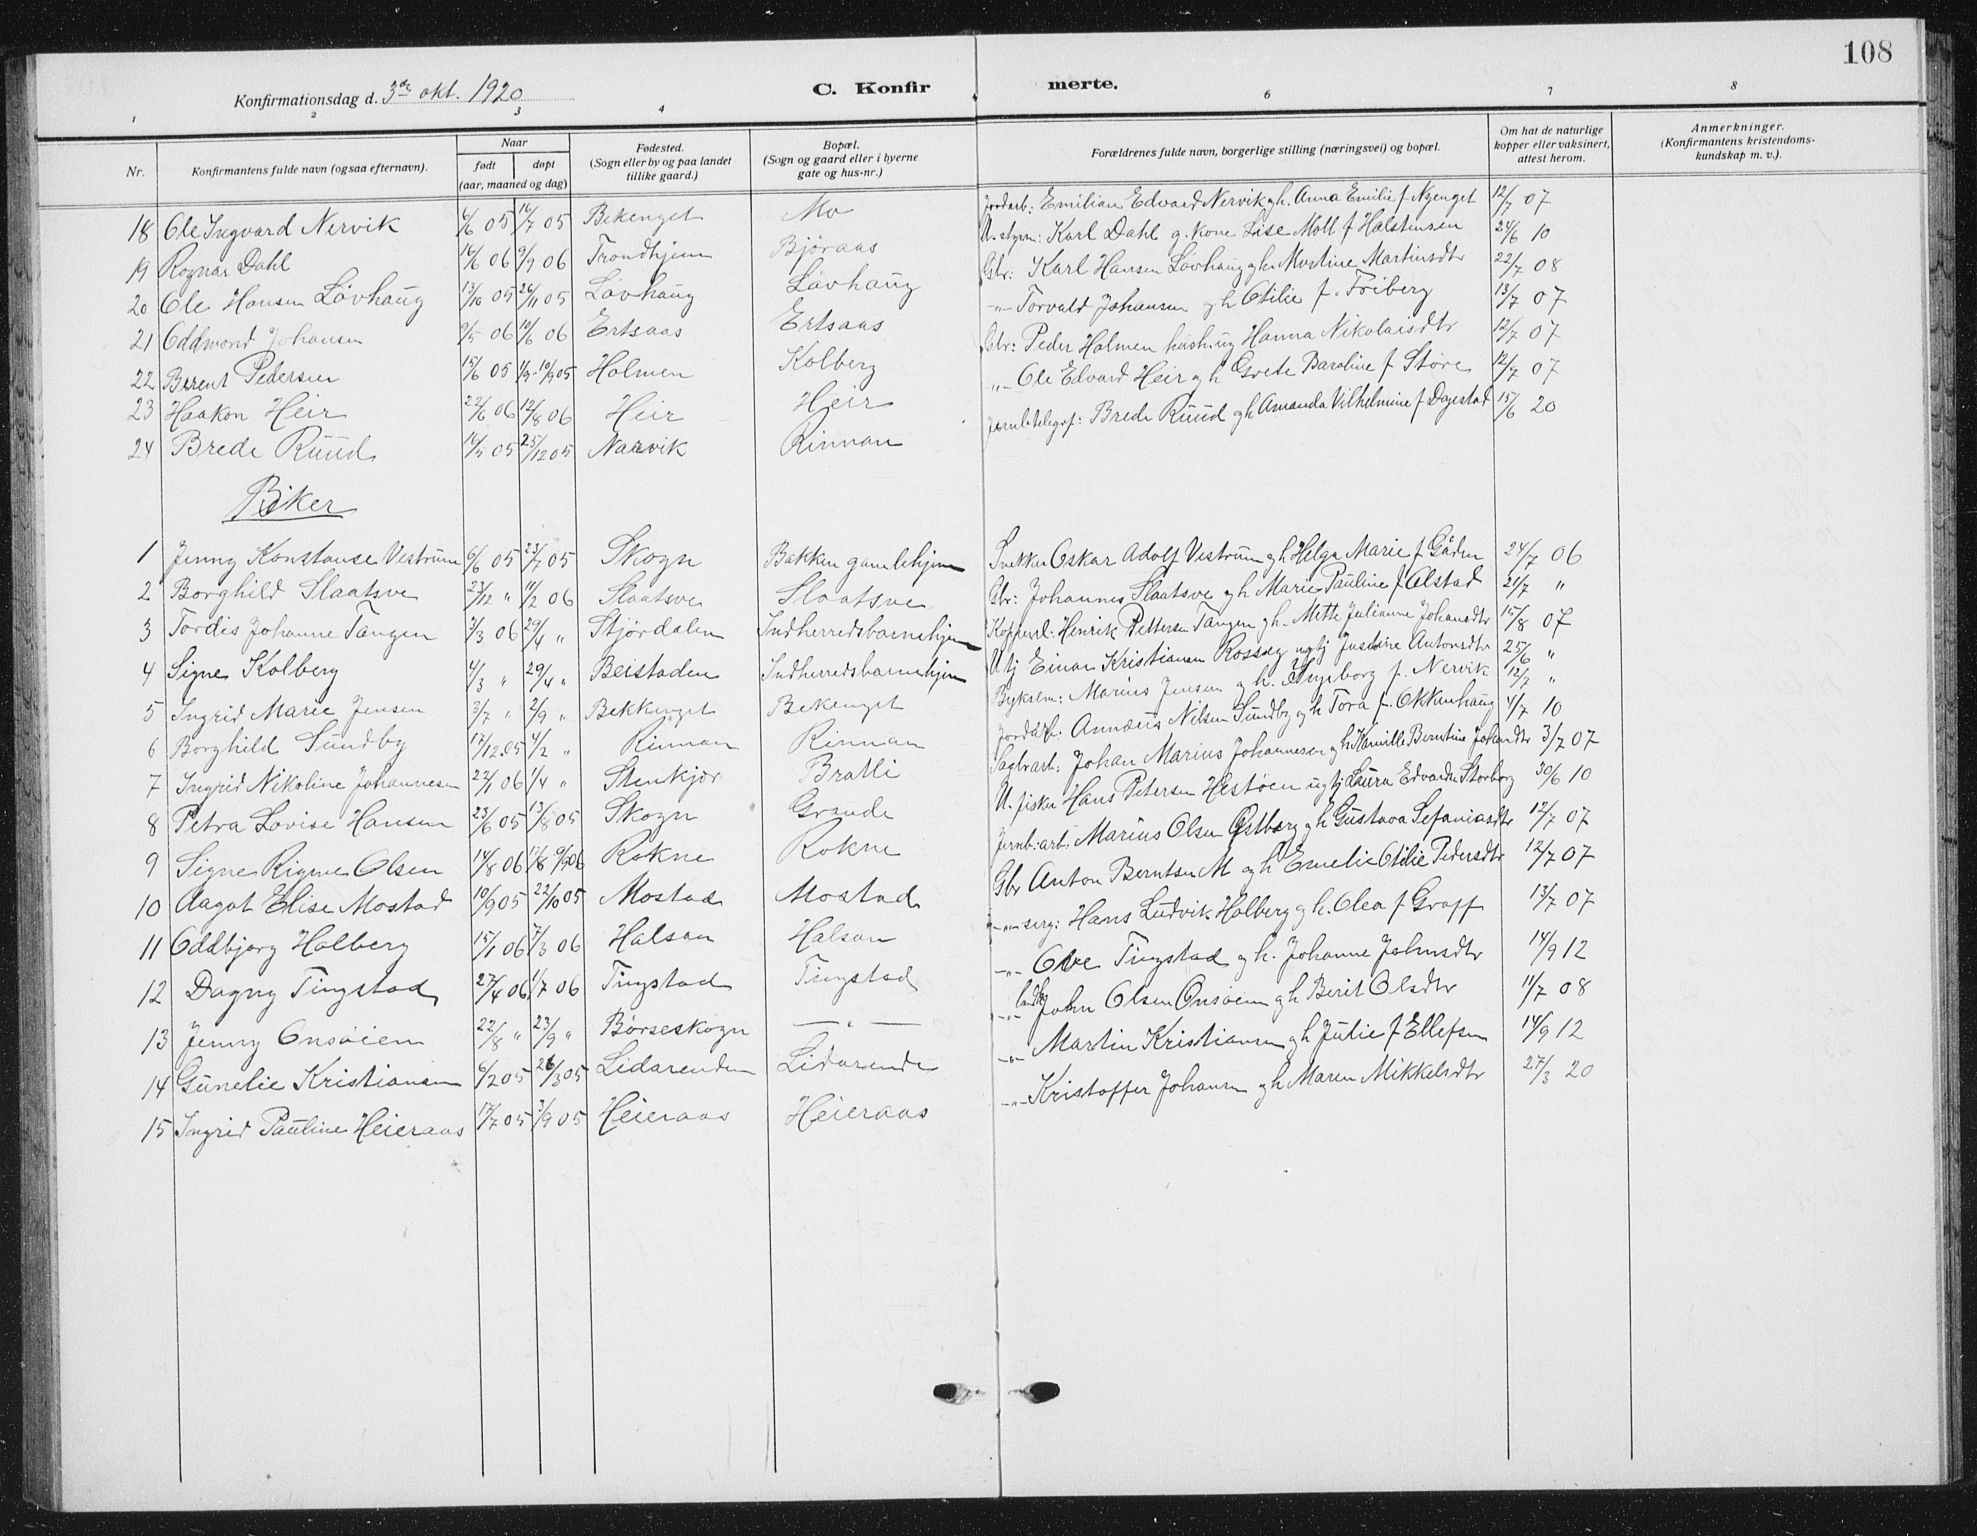 108
Konfirmationsdag d. 3de okt. 1920 C. Konfir merte.
1 2 3 4 6 7 8
Nr. Konfirmantens fulde navn (ogsaa efternavn). Naar født døpt (aar, maaned og dag) Fødested. (Sogn eller by og paa landet tillike gaard.) Bopæl. (Sogn og gaard eller i byerne gate og hus-nr.) Forældrenes fulde navn, borgerlige stilling (næringsvei) og bopæl. Om hat de naturlige kopper eller vaksinert, attest herom. Anmerkninger. (Konfirmantens kristendomskundskap m. v.).
18 Ole Ingvard Nervik 4/6 05 16/7 05 Bekenget Mo Jordarb: Emilian Edvard Nervik g h. Anna Emilie f. Nyenget 12/7 07
19 Ragnar Dahl 14/6 06 9/9 06 Trondhjem Björaas U. styrm: Karl Dahl g. kone Lise Moll f Halstensen 24/6 10
20 Ole Hansen Lövhaug 13/10 05 26/11 05 Lövhaug Lövhaug Gbr: Karl Hansen Lövhaug g h Martinsdtr 22/7 08
21 Oddmond Johansen 9/5 06 10/6 06 Ertsaas Ertsaas -"- Torvald Johansen g h Otilie f. Friberg 13/7 07
22 Berent Pedersen 15/6 05 10/9 05 Holmen Kolberg Gbr: Peder Holmen hustru Hanna Nikolaisdtr 12/7 07
23 Haakon Heir 22/6 06 12/8 06 Heir Heir -"- Ole Edvard Heir g h Grete Baroline f Støre 12/7 07
24 Brede Ruud 14/5 05 25/12 05 Narvik Rinnan Jernb.telegrf: Brede Ruud g h Amanda Vilhelmine f Dagestad 15/6 20
Piker
1 Jenny Konstanse Vestrum 6/6 05 23/7 05 Skogn Bakken gamlehjem Snekker Oskar Adolf Vestrum g h Helga Marie f Gåden 24/7 06
2 Borghild Slaatsve 23/12 " 11/2 06 Slaatsve Slaatsve Gbr: Johannes Slaatsve g h Marie Pauline f. Alstad 21/7 "
3 Tordis Johanne Tangen 3/3 06 29/4 " Stjørdalen Indherredsbarnehjem Henrik Pettersen Tangen g h. Mette Julianne Johansdtr 15/8 07
4 Signe Kolberg 4/3 " 29/4 " Beistaden Indherredsbarnehjem Utj Einar Kristiansen ugtj Justine Antonsdtr 25/6 "
5 Ingrid Marie Jensen 3/7 " 2/9 " Bekkenget Bekenget Marius Jensen g h. Ingeborg f. Nervik 12/7 "
6 Borghild Sundby 17/12 05 4/2 " Rinnan Rinnan Jordarb. Annæus Nilsen Sundby g h Tora f. Okkenhaug 4/7 10
7 Ingrid Nikoline Johannesen 22/1 06 1/4 " Stenkjær Bratli Sagbrarb: Johan Marius Johannesen g h Kamille Berntine Johansdtr 3/7 07
8 Petra Lovise Hansen 23/6 05 13/8 05 Skogn Grande U. fisker Hans Petersen Hestøen ugtj Laura Edvarda Storborg 30/6 10
9 Signe Rigmor Olsen 14/8 06 9/9 06 Rokne Rokne Jernb. arb: Marius Olsen Østborg g h Gustava Sefaniasdtr 12/7 07
10 Aagot Elise Mostad 10/9 05 22/10 05 Mostad Mostad Gbr Anton Berntsen M g h Emelie Otilie Pedersdtr 12/7 07
11 Oddbjørg Holberg 15/1 06 7/3 06 Halsan Halsan -"- serg: Hans Ludvik Holberg g h. Olea f Graff 13/7 07
12 Dagny Tingstad 27/4 06 1/7 06 Tingstad Tingstad -"- Ole Tingstad g h. Johanne Johnsdtr 14/9 12
13 Jenny Onsøien 22/8 " 23/9 " Børseskogn — " — -"- John Olsen Onsøien g h Berit Olsdtr 11/7 08
14 Gunelie Kristiansen 6/2 05 26/3 05 Lidarenden Lidarende -"- Martin Kristiansen g h Julie f Ellefsen 14/9 12
15 Ingrid Pauline Heieraas 17/7 05 3/9 05 Heieraas Heieraas -"- Kristoffer Johansen g h Maren Mikkelsdtr 27/3 20